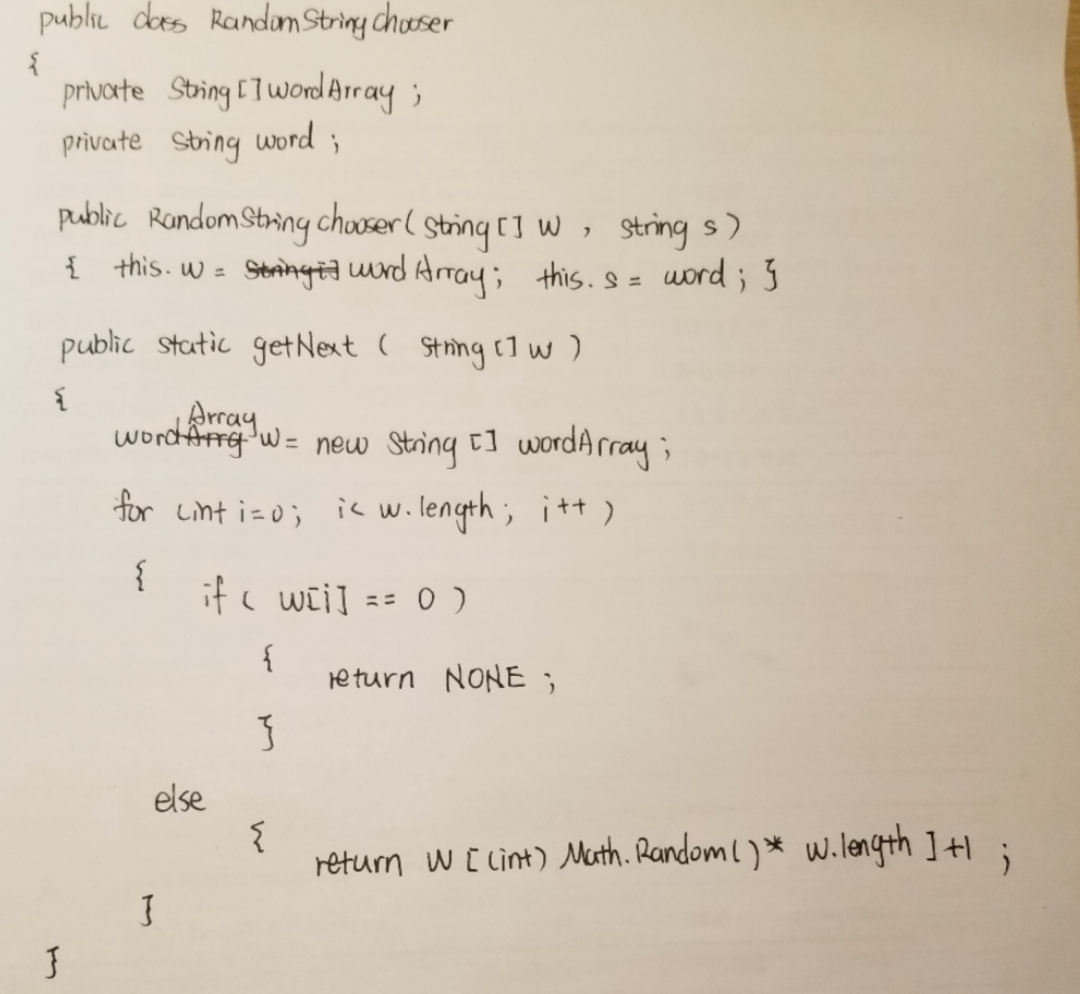 public class RandomStringChooser
{
private String[] wordArray ;
private String word ;
public RandomStringChooser( String[] w , string s )
{ this. w = String[] wordArray; this. s = word ; }
public static getNext ( String [] w )
{
wordArrg Array w = new String [] wordArray ;
for (int i=0; i< w.length ; i++ )
{
if ( w[i] == 0 )
{
return NONE ;
}
else
{
return w [ (int) Math.Random()* w.length ] +1 ;
}
}